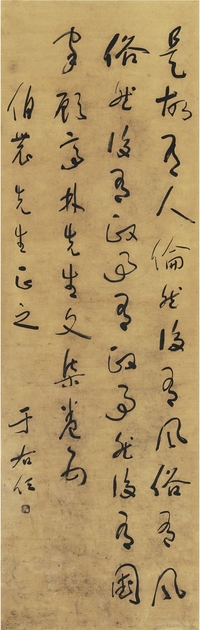 是故有人倫然後有風俗有風
俗然後有政事有政事然後有國
家顧亭林先生文集卷五
伯農先生正之
于右任